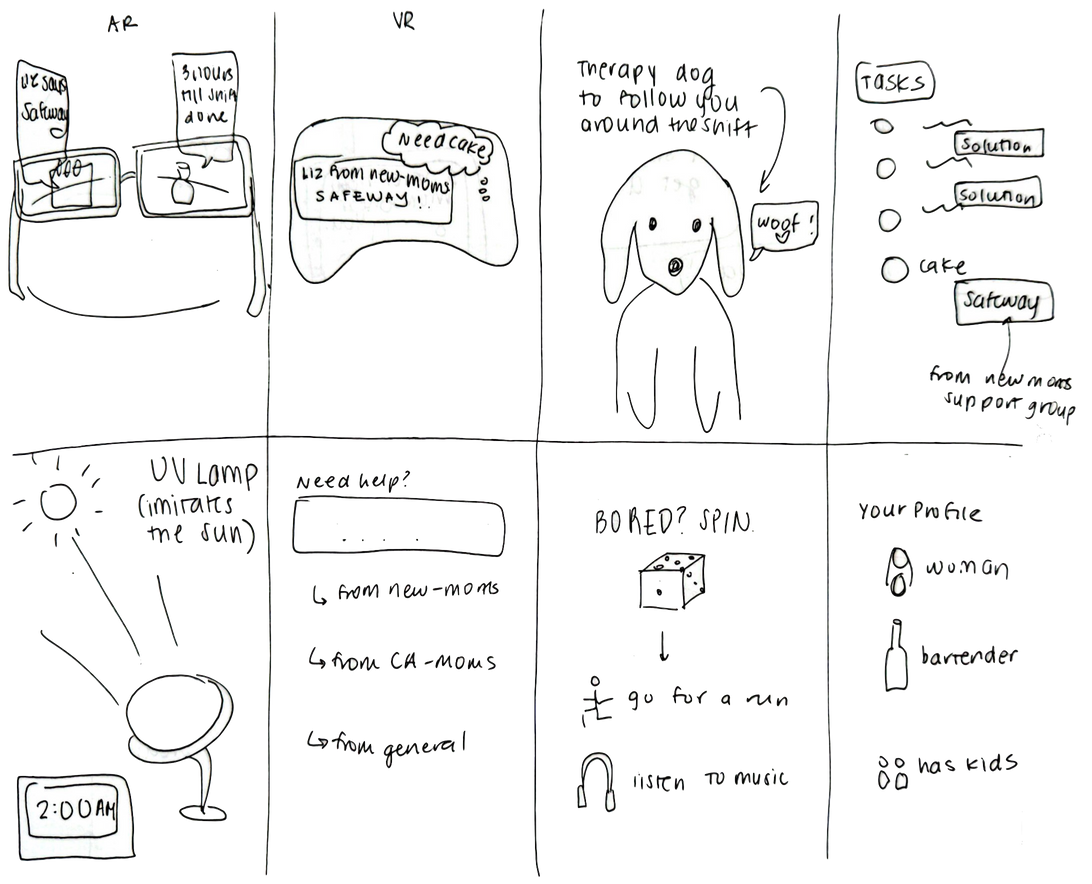 AR
Liz says
Safeway
3 hours
till shift
done
VR
Need cake
Liz from new-moms
SAFEWAY!
Therapy dog
to follow you
around the shift
woof!
Tasks
solution
solution
cake
Safeway
from new moms
support group
UV Lamp
(imitates
the sun)
2:00AM
Need help?
. . . .
from new-moms
from CA-moms
from general
BORED? SPIN.
go for a run
listen to music
Your Profile
woman
bartender
has kids